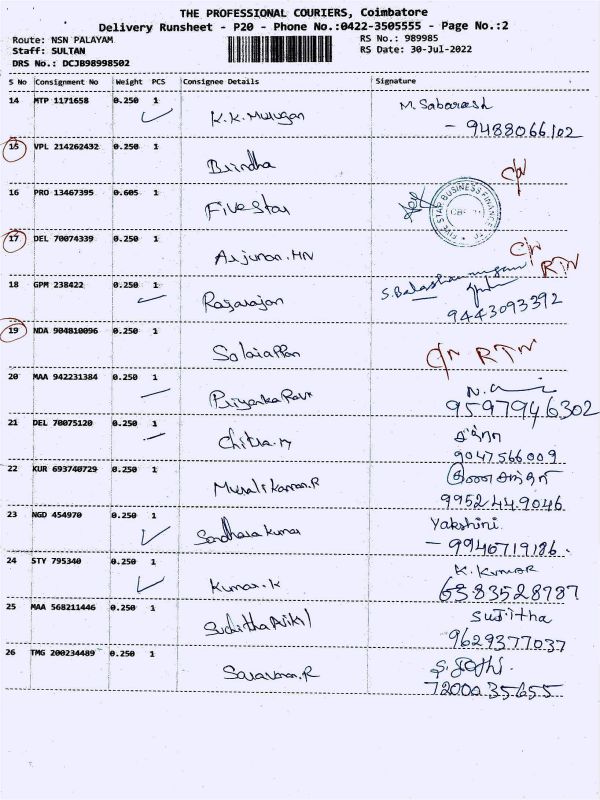 THE PROFESSIONAL COURIERS, Coimbatore
Delivery Runsheet - P20 - Phone No.:0422-3505555 - Page No.:2
Route: NSN PALAYAM RS No.: 989985
Staff: SULTAN RS Date: 30-Jul-2022
DRS No.: DCJB98998502
S No Consignment No Weight PCS Consignee Details Signature
14 MTP 1171658 0.250 1 K.K. Murugan M. Sabarish
- 9488066102
15 VPL 214262432 0.250 1 Brindha
16 PRO 13467395 0.605 1 Five Star FIVE STAR BUSINESS FINANCE
17 DEL 70074339 0.250 1 Arjunan.MN RTN
18 GPM 238422 0.250 1 Rajarajan
9443093392
19 NDA 904810096 0.250 1 RTN
20 MAA 942231384 0.250 1 Priyanka
9597946302
21 DEL 70075120 0.250 1 Chitra.M சித்ரா
9047566009
22 KUR 693740729 0.250 1 Muralikannan.R
9952449046
23 NGD 454970 0.250 1 Kumar Yakshini
- 9940719186.
24 STY 795340 0.250 1 Kumar.K K. Kumar
6383528787
25 MAA 568211446 0.250 1 Sujitha
9629377037
26 TMG 200234489 0.250 1 Saravanan.R S. Jothi.
7200035655